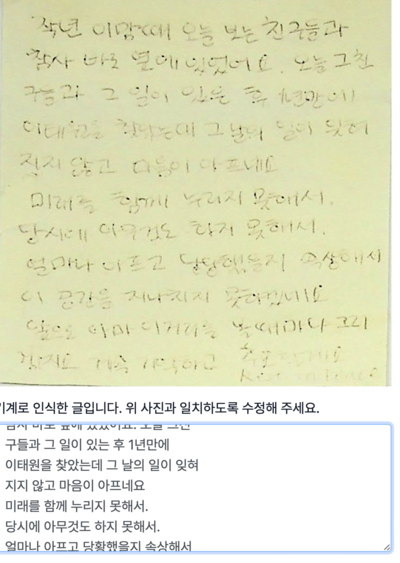 작년 이맘때 오늘 보는 친구들과
참사 바로 옆에 있었어요. 오늘 그친
구들과 그 일이 있은 후 1년만에
이태원을 찾았는데 그 날의 일이 잊혀
지지 않고 마음이 아프네요
미래를 함께 누리지 못해서.
당시에 아무것도 하지 못해서.
얼마나 아프고 당황했을지 속상해서
이 공간을 지나치지 못하겠네요
앞으로 아마 이거리를 볼때마다 그리
계로 인식한 글입니다. 위 사진과 일치하도록 수정해 주세요.
참사 바로 옆에 있었어요. 오늘 그친
구들과 그 일이 있는 후 1년만에
이태원을 찾았는데 그 날의 일이 잊혀
지지 않고 마음이 아프네요
미래를 함께 누리지 못해서.
당시에 아무것도 하지 못해서.
얼마나 아프고 당황했을지 속상해서